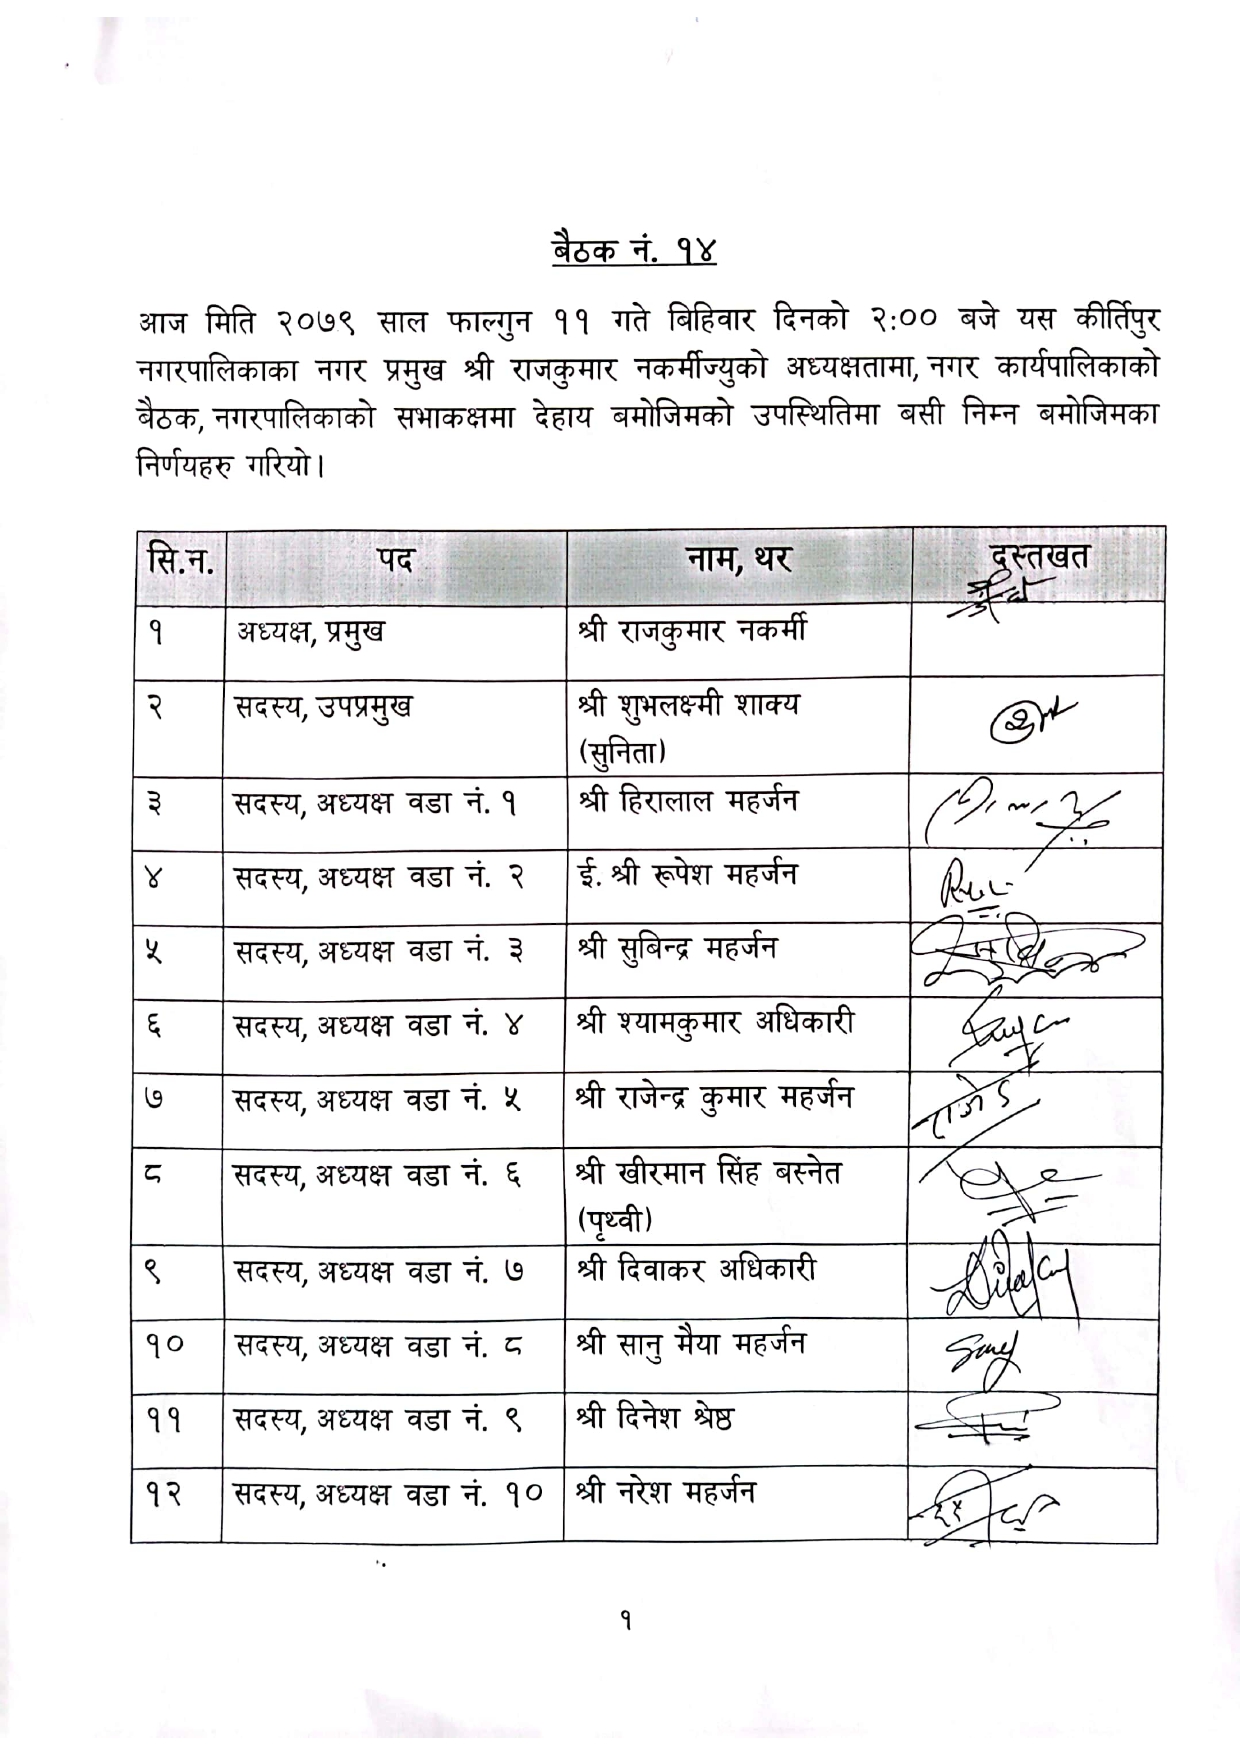 बैठक नं. १४
आज मिति २०७९ साल फाल्गुन ११ गते बिहिवार दिनको २:०० बजे यस कीर्तिपुर
नगरपालिकाका नगर प्रमुख श्री राजकुमार नकर्मीज्युको अध्यक्षतामा, नगर कार्यपालिकाको
बैठक, नगरपालिकाको सभाकक्षमा देहाय बमोजिमको उपस्थितिमा बसी निम्न बमोजिमका
निर्णयहरु गरियो।
सि.न. पद नाम, थर दस्तखत
१ अध्यक्ष, प्रमुख श्री राजकुमार नकर्मी
२ सदस्य, उपप्रमुख श्री शुभलक्ष्मी शाक्य
(सुनिता)
३ सदस्य, अध्यक्ष वडा नं. १ श्री हिरालाल महर्जन
४ सदस्य, अध्यक्ष वडा नं. २ ई. श्री रूपेश महर्जन
५ सदस्य, अध्यक्ष वडा नं. ३ श्री सुबिन्द्र महर्जन
६ सदस्य, अध्यक्ष वडा नं. ४ श्री श्यामकुमार अधिकारी
७ सदस्य, अध्यक्ष वडा नं. ५ श्री राजेन्द्र कुमार महर्जन
८ सदस्य, अध्यक्ष वडा नं. ६ श्री खीरमान सिंह बस्नेत
(पृथ्वी)
९ सदस्य, अध्यक्ष वडा नं. ७ श्री दिवाकर अधिकारी
१० सदस्य, अध्यक्ष वडा नं. ८ श्री सानु मैया महर्जन
११ सदस्य, अध्यक्ष वडा नं. ९ श्री दिनेश श्रेष्ठ
१२ सदस्य, अध्यक्ष वडा नं. १० श्री नरेश महर्जन
१